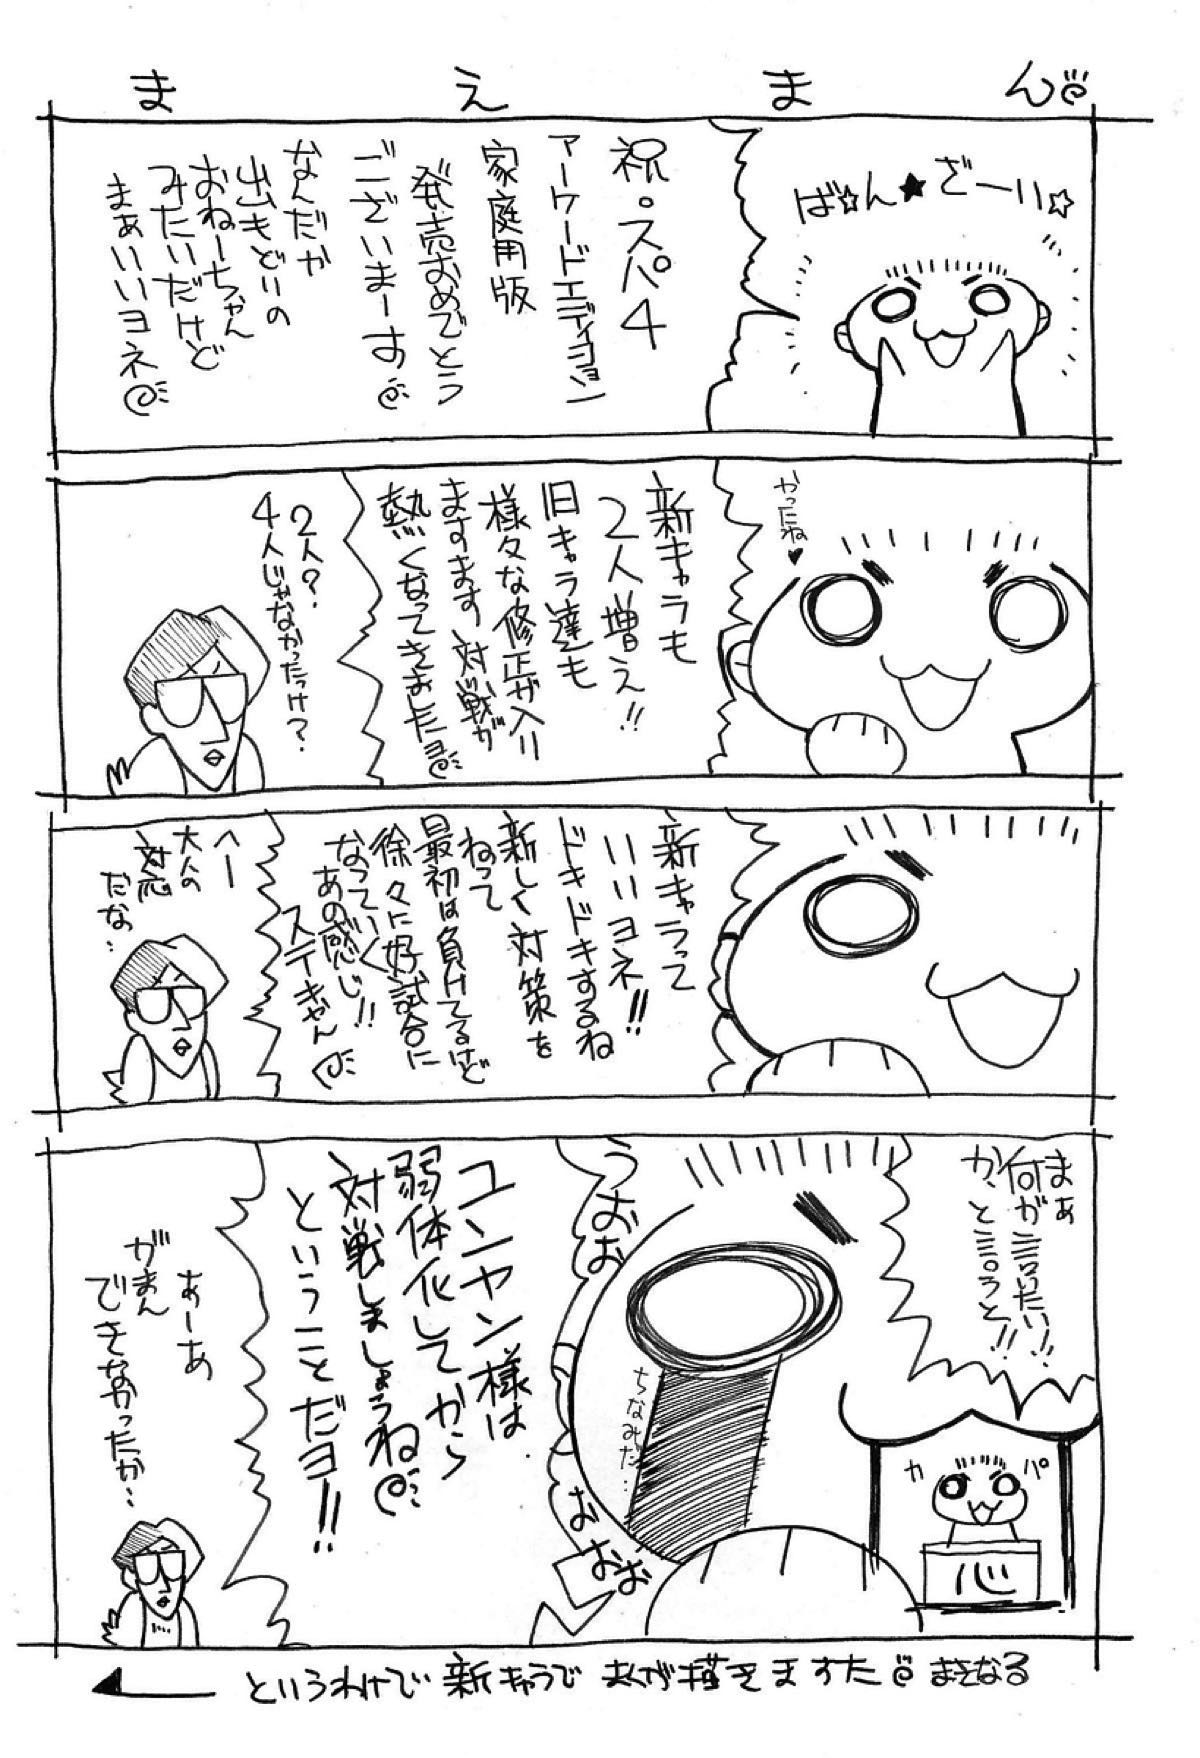 まえまん
ば☆ん★ざーい☆
祝・スパ4
アーケードエディション
家庭用版
発売おめでとう
ございまーす
なんだか
出もどりの
おねーちゃん
みたいだけど
まぁいいヨネ
やったね♥
新キャラも
2人増え!!
旧キャラ達も
様々な修正が入り
ますます対戦が
熱くなってきましたヨ
2人?
4人じゃなかったっけ?
新キャラって
いいヨネ!!
ドキドキするね
新しく対策を
ねって
最初は負けてるけど
徐々に好試合に
なっていく
あの感じ!!
ステキやん
へー
大人の
対応
だな…
まぁ
何が言いたい!!
か、と言うと!!
カパ
心
うおお
おおお
ちなみだ…
ユンヤン様は
弱体化してから
対戦しましょうね
ということだヨ!!
あーあ
がまん
できなかったか…
というわけで新キャラでまんが描きますた まさなる